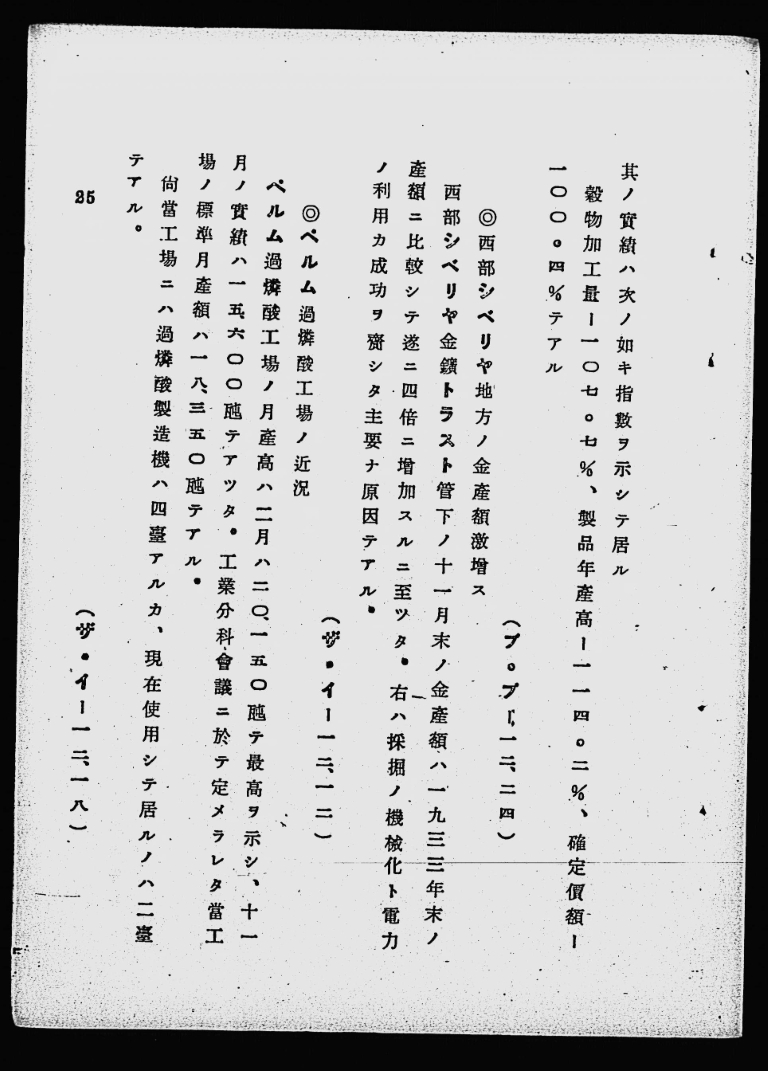 其ノ實績ハ次ノ如キ指數ヲ示シテ居ル
穀物加工量ー一〇七。七%、製品年產高ー一一四。二%、確定價額ー
一〇〇。四%テアル
(プ。プー,一二、二四)
◎西部シベリヤ地方ノ金產額激增ス
西部シベリヤ金鑛トラスト管下ノ十一月末ノ金產額ハ一九三三年末ノ
產額ニ比較シテ遂ニ四倍ニ增加スルニ至ツタ。右ハ採掘ノ機械化ト電力
ノ利用カ成功ヲ齎シタ主要ナ原因テアル。
(ザ・イー一二、一二)
◎ペルム過燐酸工場ノ近況
ペルム過燐酸工場ノ月產高ハ二月ハ二〇、一五〇瓲テ最高ヲ示シ、十一
月ノ實績ハ一五、六〇〇瓲テアツタ。工業分科會議ニ於テ定メラレタ當工
場ノ標準月產額ハ一八、三五〇瓲テアル。
尙當工場ニハ過燐酸製造機ハ四臺アルカ、現在使用シテ居ルノハ二臺
テアル。
(ザ・イー一二、一八)
25